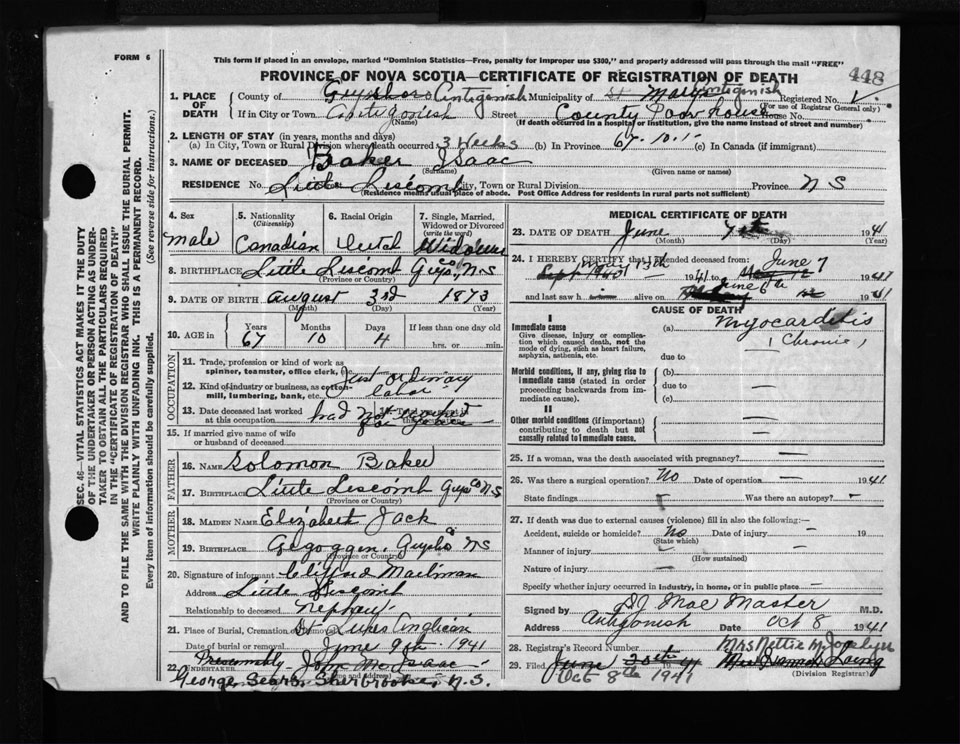 FORM 6
This form if placed in an envelope, marked "Dominion Statistics—Free, penalty for improper use $300," and properly addressed will pass through the mail "FREE"
PROVINCE OF NOVA SCOTIA—CERTIFICATE OF REGISTRATION OF DEATH
448
1. PLACE OF DEATH
County of Guysboro Antigonish Municipality of St Marys Antigonish Registered No. 1
(For use of Registrar General only)
If in City or Town Antigonish Street County Poor house House No.
(Name) (If death occurred in a hospital or institution, give the name instead of street and number)
2. LENGTH OF STAY (in years, months and days)
(a) In City, Town or Rural Division where death occurred 3 Weeks (b) In Province 67.10.1 (c) In Canada (if immigrant)
3. NAME OF DECEASED Baker Isaac
(Surname) (Given name or names)
RESIDENCE No. Little Liscomb City, Town or Rural Division Province N S
(Residence means usual place of abode. Post Office Address for residents in rural parts not sufficient)
4. Sex
male
5. Nationality (Citizenship)
Canadian
6. Racial Origin
Dutch
7. Single, Married, Widowed or Divorced (write the word)
Widower
8. BIRTHPLACE Little Liscomb Guys Co, N.S
(Province or Country)
9. DATE OF BIRTH August 3rd 1873
(Month) (Day) (Year)
10. AGE in
Years 67
Months 10
Days 4
If less than one day old
hrs. or min.
OCCUPATION
11. Trade, profession or kind of work as spinner, teamster, office clerk, etc. Just ordinary
12. Kind of industry or business, as cotton-mill, lumbering, bank, etc. labor
13. Date deceased last worked at this occupation had not worked for years
15. If married give name of wife or husband of deceased
FATHER
16. NAME Solomon Baker
17. BIRTHPLACE Little Liscomb Guys Co N S
(Province or Country)
MOTHER
18. MAIDEN NAME Elizabeth Jack
19. BIRTHPLACE Gegoggen, Guysbo Co NS
(Province or Country)
20. Signature of informant Clifford Mailman
Address Little Liscomb
Relationship to deceased Nephew
21. Place of Burial, Cremation or Removal St Lukes Anglican
Date of burial or removal June 9th 1941
22. UNDERTAKER Presumably John McIsaac
(Name and Address)
George Sears Sherbrooke, N.S.
MEDICAL CERTIFICATE OF DEATH
23. DATE OF DEATH June 7th 1941
(Month) (Day) (Year)
24. I HEREBY CERTIFY that I attended deceased from
May 13th 1941 to June 7 1941
and last saw him alive on June 6th 1941
CAUSE OF DEATH
I
Immediate cause
Give disease, injury or complication which caused death, not the mode of dying, such as heart failure, asphyxia, asthenia, etc.
(a) Myocarditis
(Chronic)
due to —
Morbid conditions, if any, giving rise to immediate cause (stated in order proceeding backwards from immediate cause).
(b)
due to —
(c)
II
Other morbid conditions (if important) contributing to death but not causally related to immediate cause. —
25. If a woman, was the death associated with pregnancy? —
26. Was there a surgical operation? No Date of operation — 1941
State findings Was there an autopsy? -
27. If death was due to external causes (violence) fill in also the following:—
Accident, suicide or homicide? No Date of injury — 19
(State which)
Manner of injury —
(How sustained)
Nature of injury —
Specify whether injury occurred in industry, in home, or in public place —
Signed by J Mac Master M.D.
Address Antigonish Date Oct 8 1941
28. Registrar's Record Number
29. Filed June 30th 1941
Oct 8th 1941
(Division Registrar)
SEC. 46—VITAL STATISTICS ACT MAKES IT THE DUTY
OF THE UNDERTAKER OR PERSON ACTING AS UNDERTAKER
TO OBTAIN ALL THE PARTICULARS REQUIRED
IN THE "CERTIFICATE OF REGISTRATION OF DEATH"
AND TO FILE THE SAME WITH THE DIVISION REGISTRAR WHO SHALL ISSUE THE BURIAL PERMIT.
WRITE PLAINLY WITH UNFADING INK. THIS IS A PERMANENT RECORD.
Every item of information should be carefully supplied. (See reverse side for instructions.)